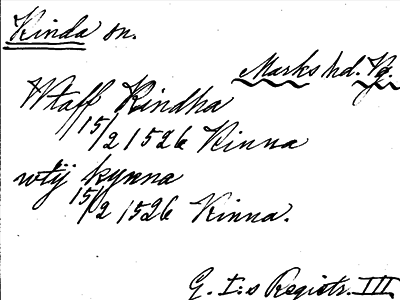 Kinda sn.
Marks hd. Vg.
Wtaff Kindha
15/2 1526 Kinna
wtij kynna
15/2 1526 Kinna.
G. I:s Registr. III